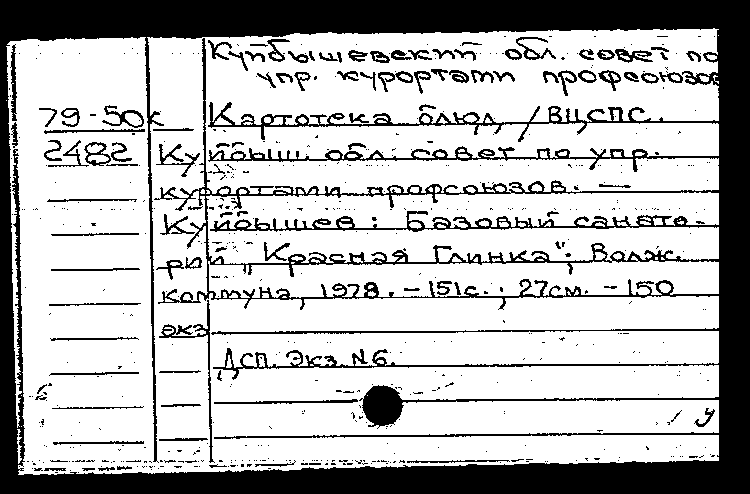 Куйбышевский обл. совет по
упр. курортами профсоюзов
79-50к Картотека блюд, /ВЦСПС.
2482 Куйбыш. обл. совет по упр.
курортами профсоюзов. —
Куйбышев: Базовый санато-
рий „Красная Глинка"; Волж.
коммуна, 1978. - 151с.; 27см. - 150
экз
Дсп. Экз. N6.
У